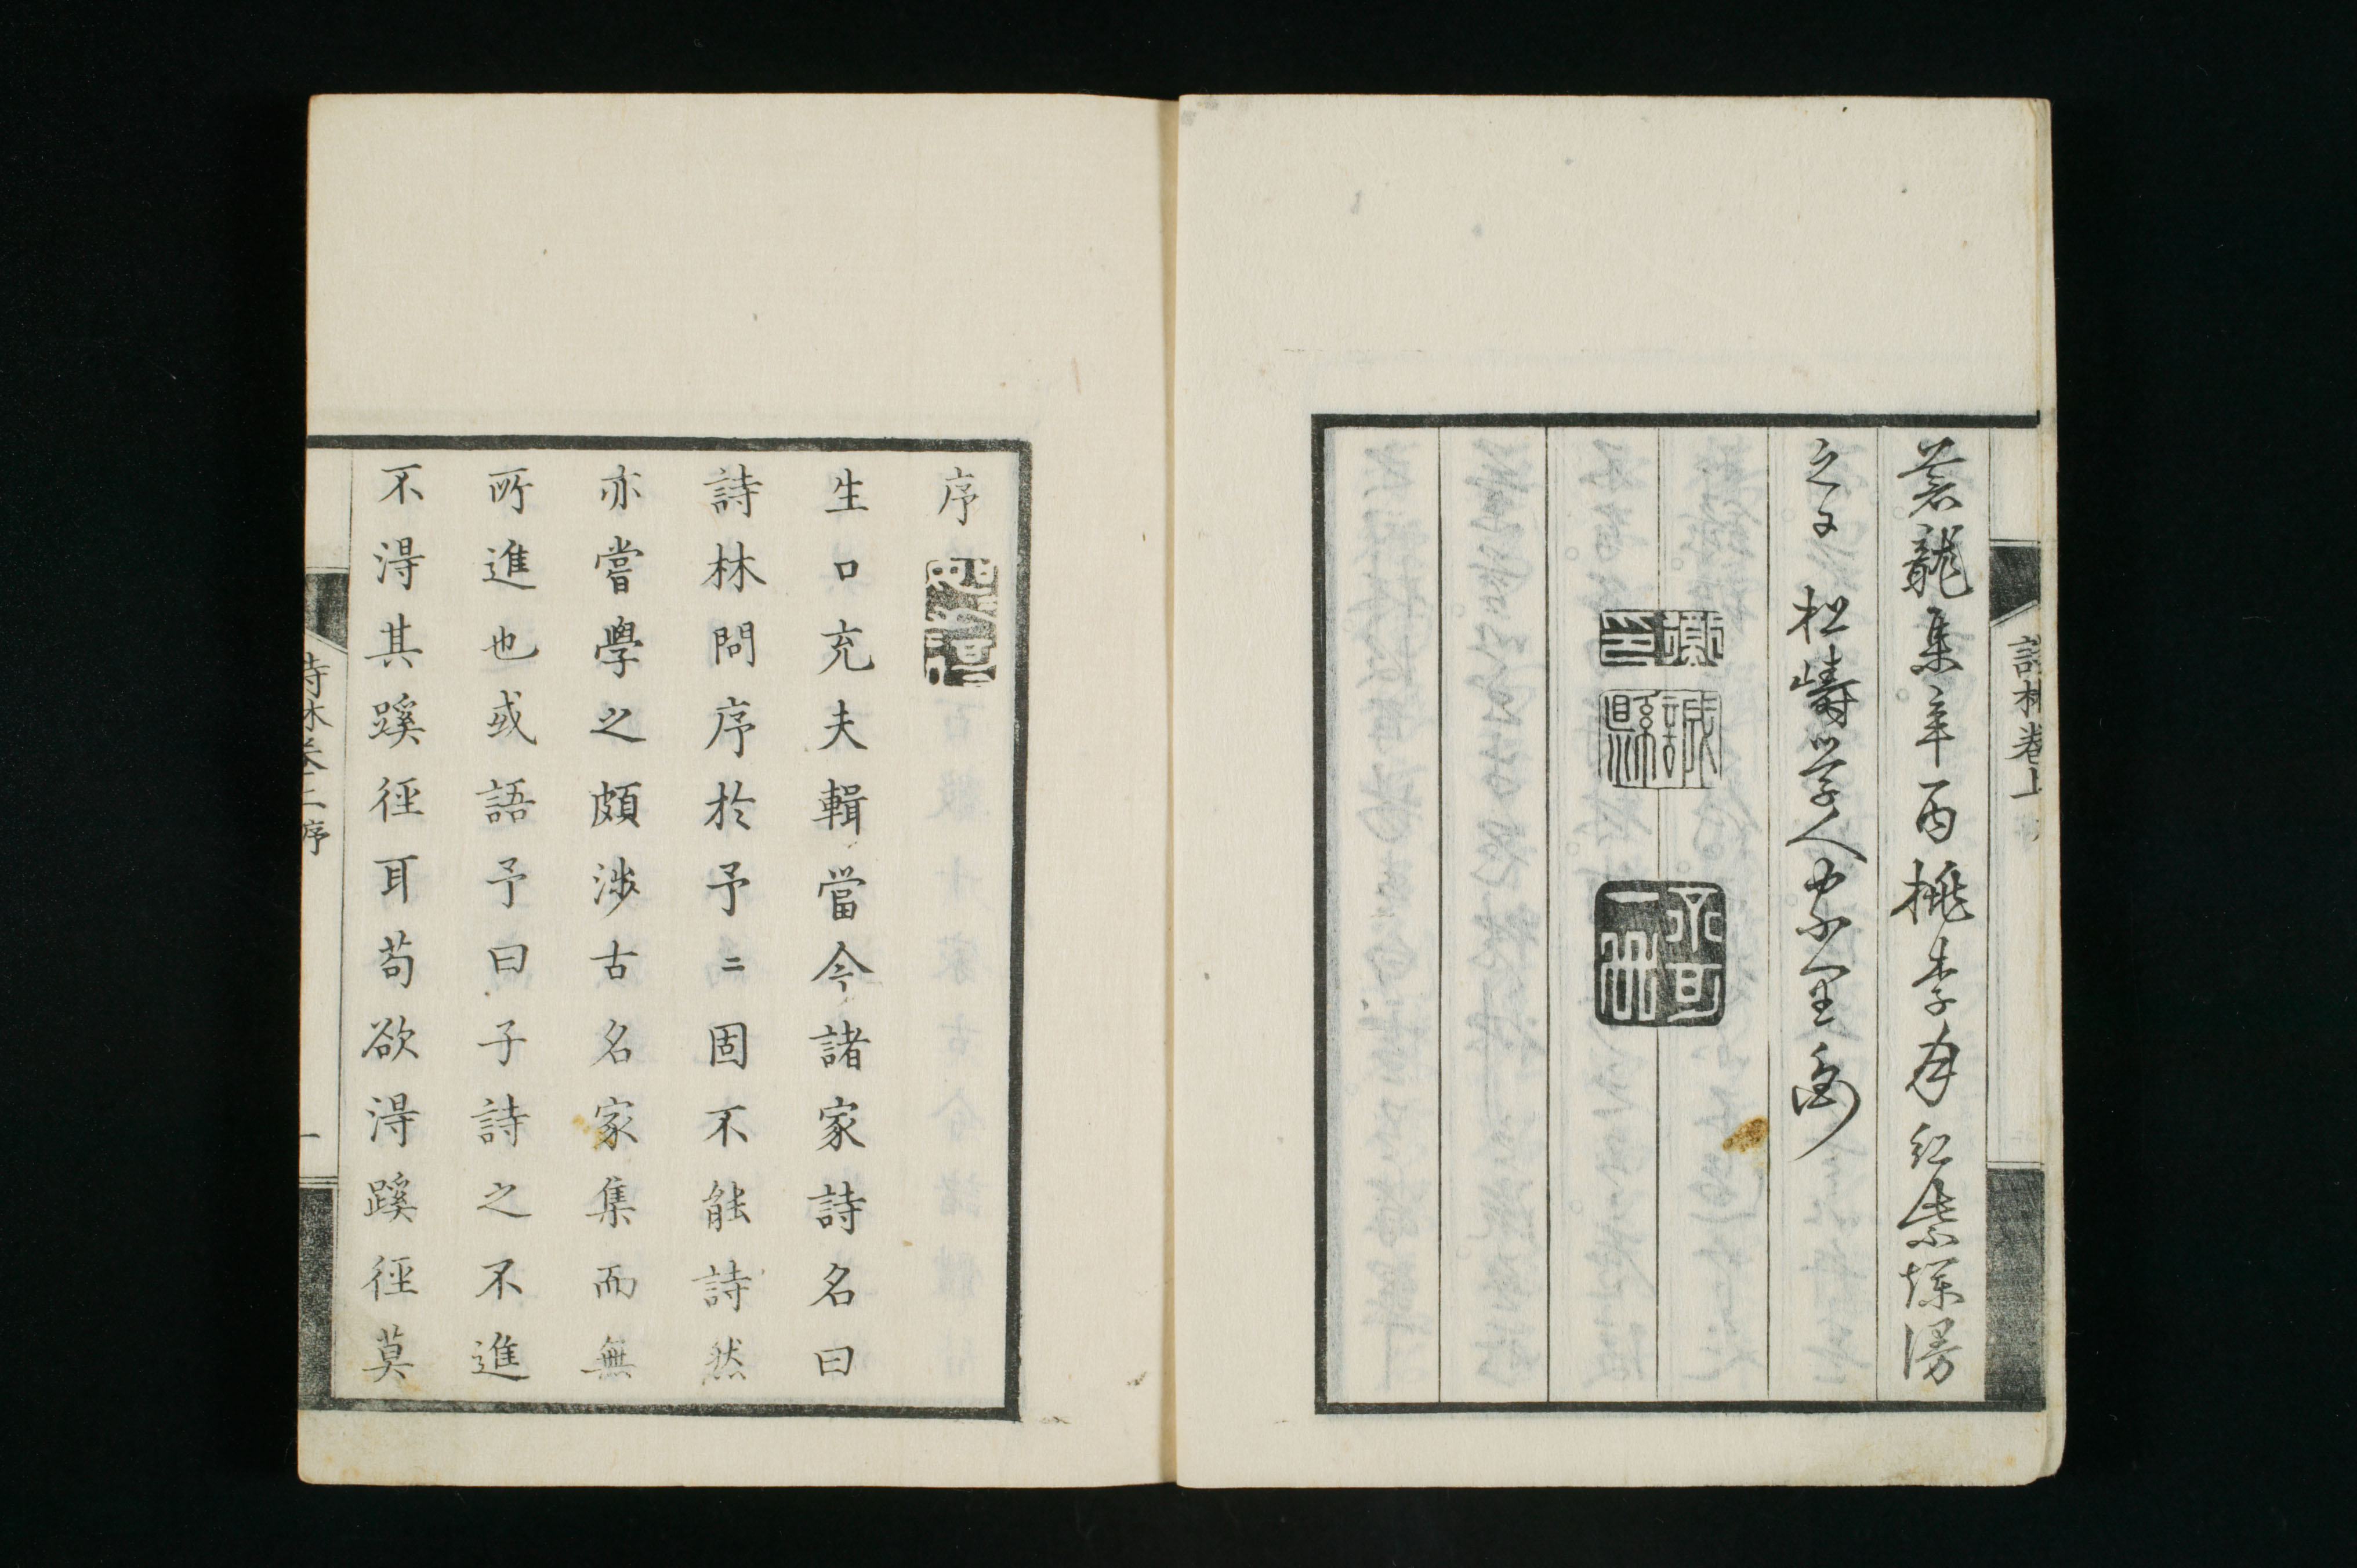 詩林卷上
蒼龍集辛酉桃李月紅紫爛漫
之日
序
生口充夫輯當今諸家詩名曰
詩林問序於予二固不能詩然
亦嘗學之頗涉古名家集而無
所進也或語予曰子詩之不進
不得其蹊徑耳苟欲得蹊徑莫
詩林卷上序
一